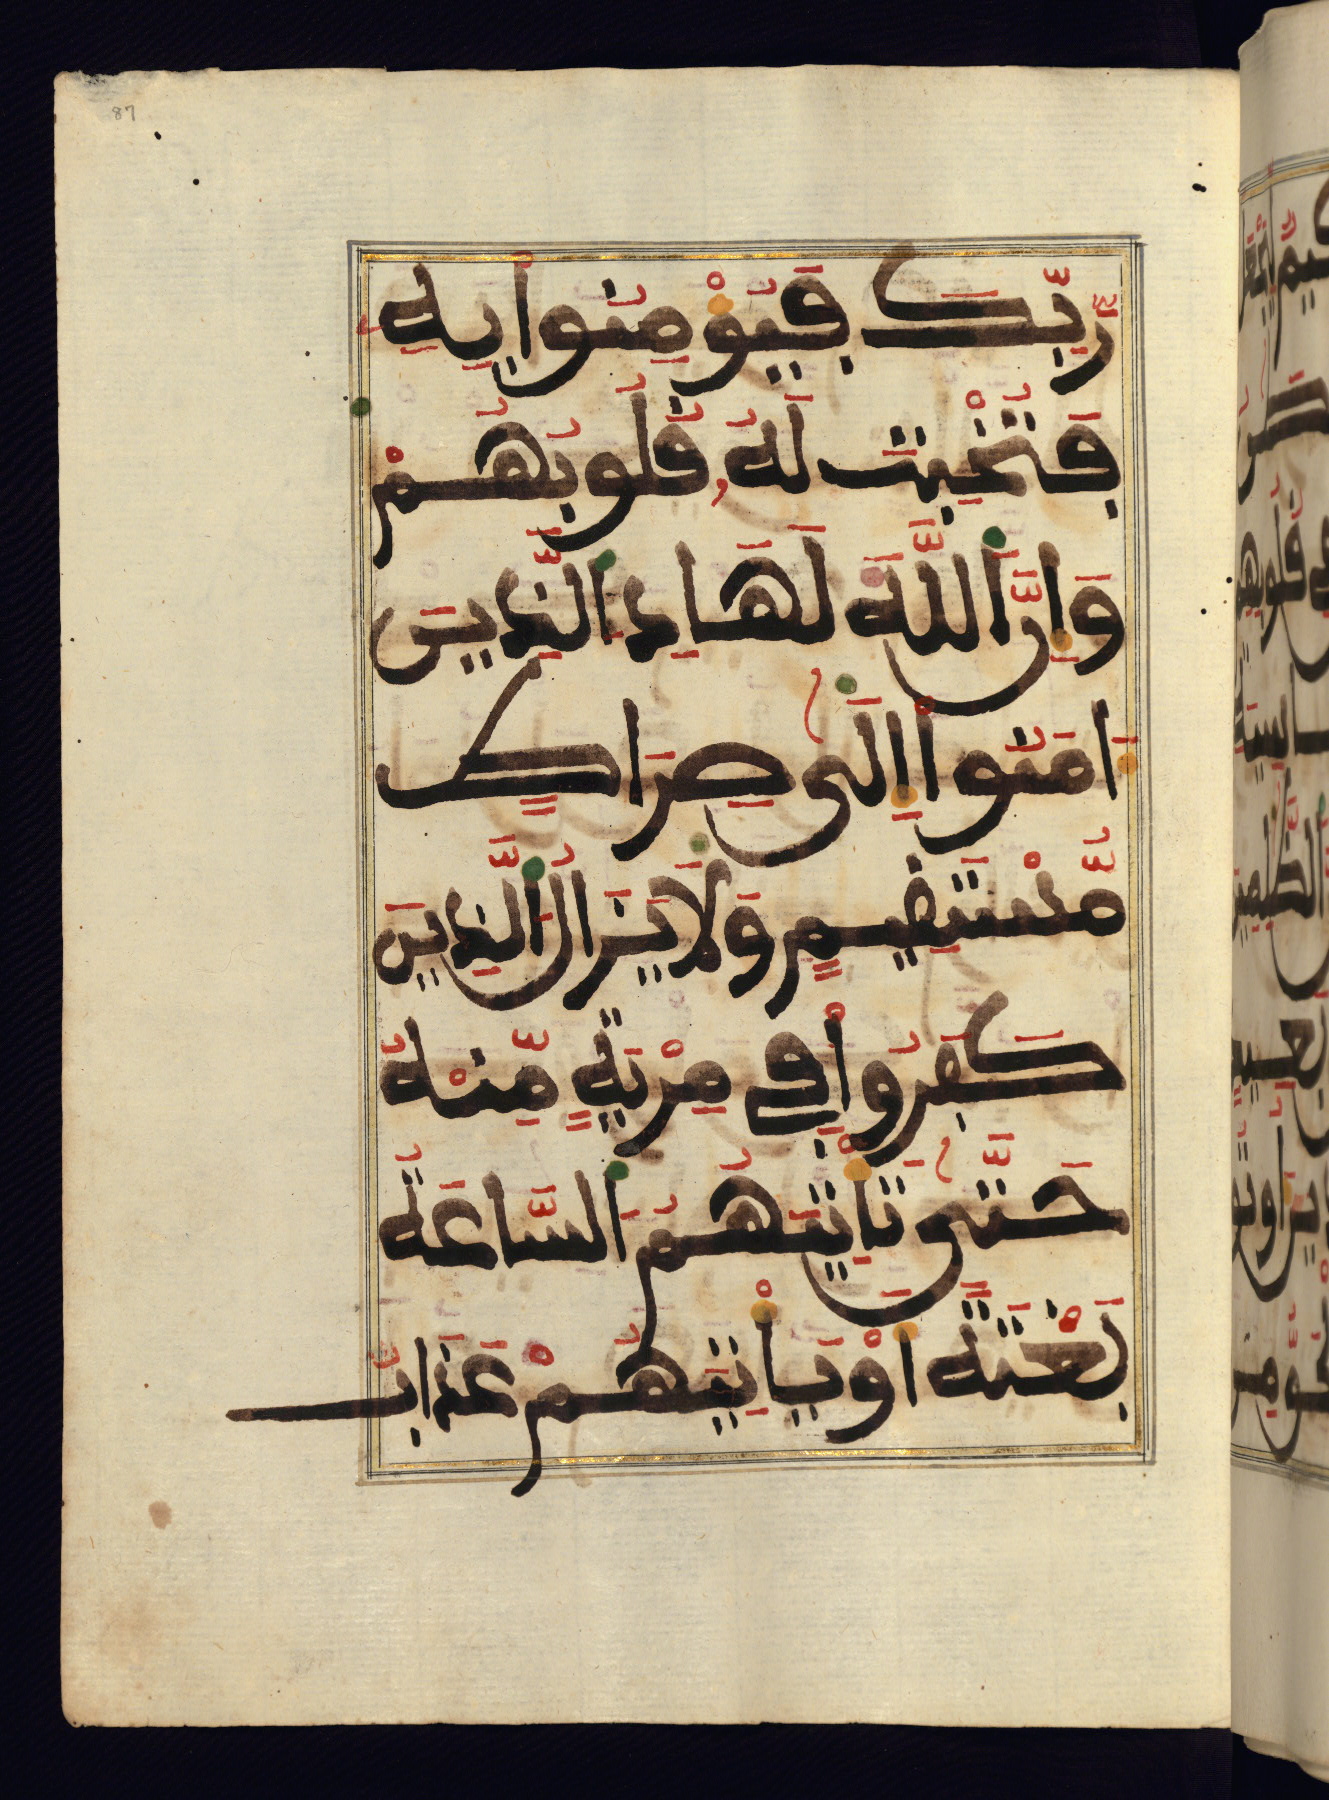 87
رَّبِّكَ فَيُؤْمِنُوا۟ بِهِۦ
فَتُخْبِتَ لَهُۥ قُلُوبُهُمْ
وَإِنَّ ٱللَّهَ لَهَادِ ٱلَّذِينَ
ءَامَنُوٓا۟ إِلَىٰ صِرَٰطٍ
مُّسْتَقِيمٍ وَلَا يَزَالُ ٱلَّذِينَ
كَفَرُوا۟ فِى مِرْيَةٍ مِّنْهُ
حَتَّىٰ تَأْتِيَهُمُ ٱلسَّاعَةُ
بَغْتَةً أَوْ يَأْتِيَهُمْ عَذَابُ